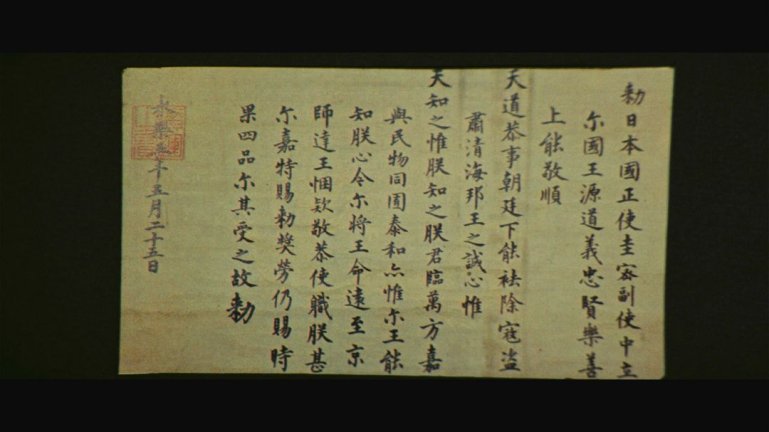 勅日本國正使圭密副使中立
尓國王源道義忠賢樂善
上能敬順
天道恭事朝廷下能祛除寇盜
肅清海邦王之誠心惟
天知之惟朕知之朕君臨萬方嘉
與民物同囿泰和亦惟尓王能
知朕心令尓將王命遠至京
師達王悃欵敬恭使職朕甚
尓嘉特賜勅奬勞仍賜時
果四品尓其受之故勅
永樂五年五月二十五日